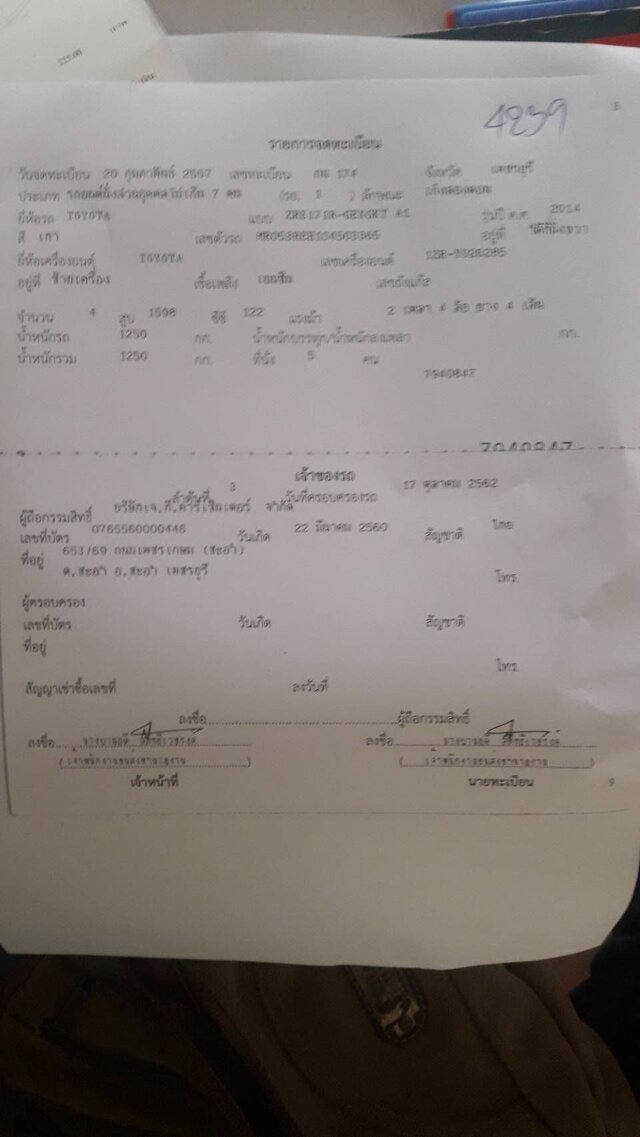 4239
8
รายการจดทะเบียน
วันจดทะเบียน 20 กุมภาพันธ์ 2557 เลขทะเบียน 174 จังหวัด เพชรบุรี
ประเภท รถยนต์นั่งส่วนบุคคลไม่เกิน 7 คน (รย. 1 ) ลักษณะ
ยี่ห้อรถ TOYOTA แบบ รุ่นปี ค.ศ. 2014
สี เทา เลขตัวรถ อยู่ที่
ยี่ห้อเครื่องยนต์ TOYOTA เลขเครื่องยนต์
อยู่ที่ ซ้ายเครื่อง เชื้อเพลิง เบนซิน เลขถังแก๊ส
จำนวน 4 สูบ 1598 ซีซี 122 แรงม้า 2 เพลา 4 ล้อ ยาง 4 เส้น
น้ำหนักรถ 1250 กก. น้ำหนักบรรทุก/น้ำหนักลงเพลา กก.
น้ำหนักรวม 1250 กก. ที่นั่ง 5 คน
7040847
7040847
เจ้าของรถ
ลำดับที่ 3 วันที่ครอบครองรถ 17 ตุลาคม 2562
ผู้ถือกรรมสิทธิ์ บริษัทเจ.ที.คาร์เซ็นเตอร์ จำกัด
เลขที่บัตร 0765560000446 วันเกิด 22 มีนาคม 2560 สัญชาติ ไทย
ที่อยู่ 653/69 ถนนเพชรเกษม (ชะอำ)
ต.ชะอำ อ.ชะอำ เพชรบุรี
โทร.
ผู้ครอบครอง
เลขที่บัตร วันเกิด สัญชาติ
ที่อยู่
โทร.
สัญญาเช่าซื้อเลขที่ ลงวันที่
ลงชื่อ ผู้ถือกรรมสิทธิ์
ลงชื่อ ลงชื่อ
(เจ้าพนักงานขนส่งชำนาญงาน) (เจ้าพนักงานขนส่งชำนาญงาน)
เจ้าหน้าที่ นายทะเบียน
9